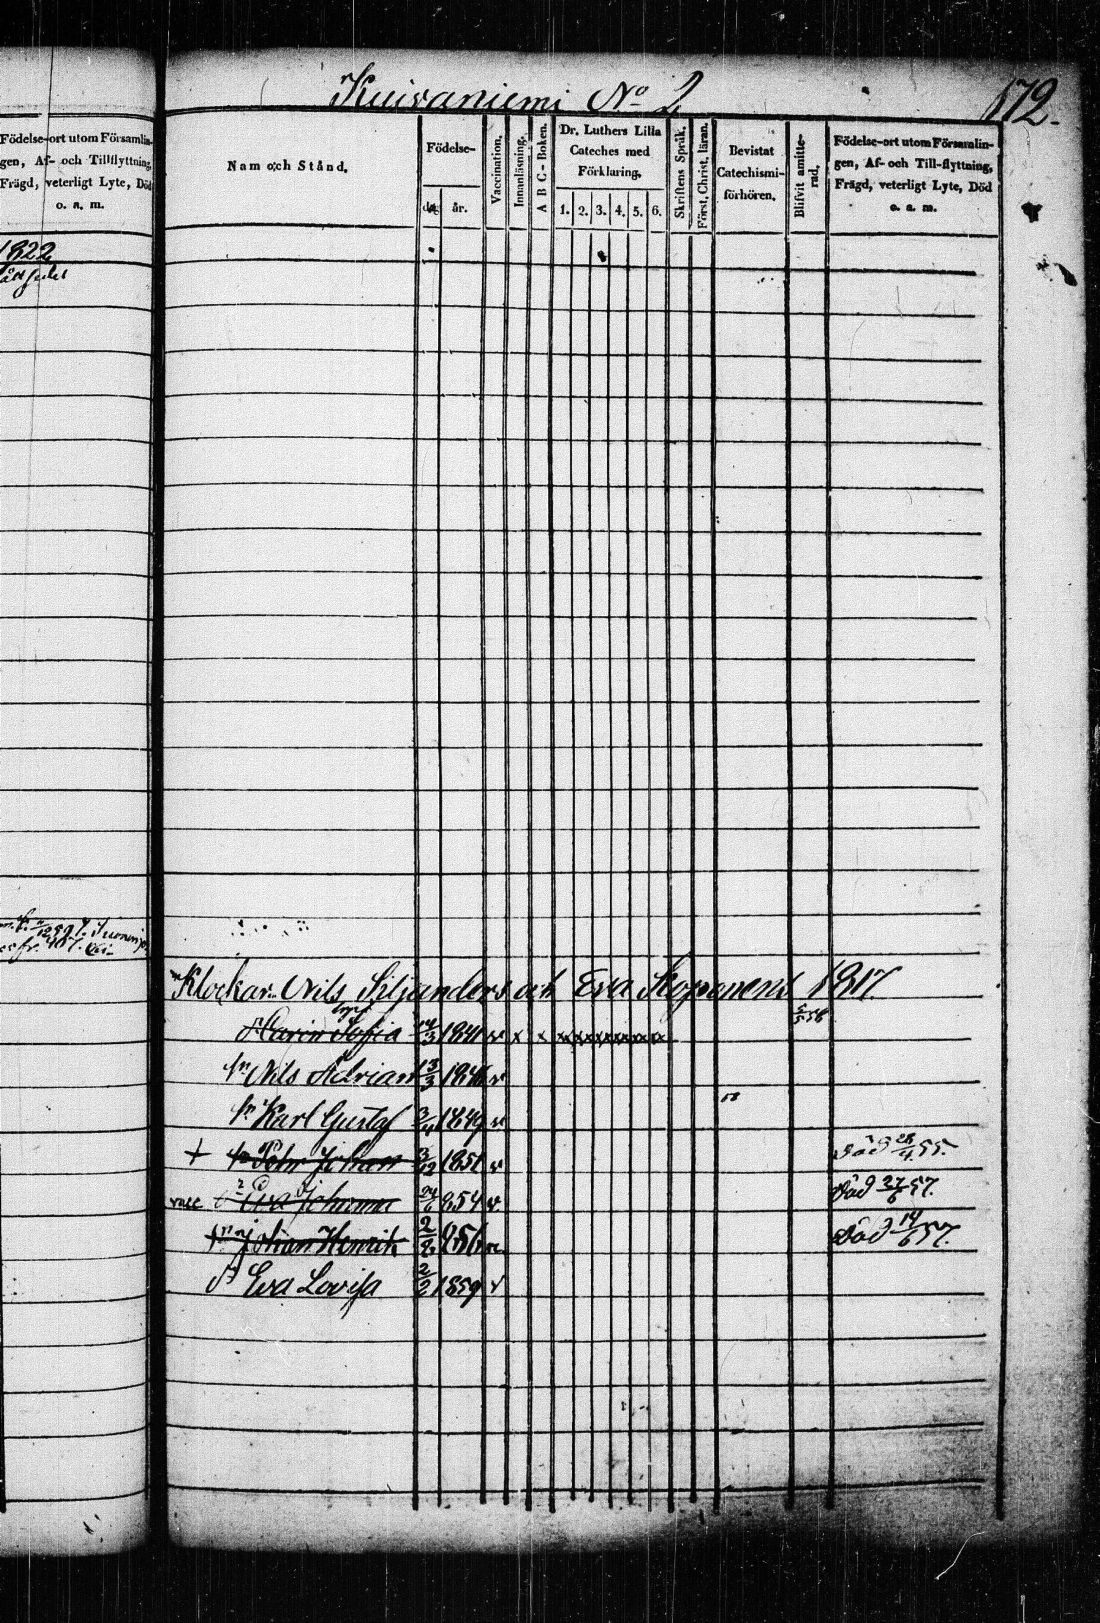 Kuivaniemi No 2
172.
Födelse-ort utom Församlin-
gen, Af- och Tillflyttning,
Frägd, veterligt Lyte, Död
o. a. m.
1822
Nam och Stånd.
Födelse-
dag
år.
Vaccination.
Innanläsning.
A B C - Boken.
Dr. Luthers Lilla
Cateches med
Förklaring.
1. 2. 3. 4. 5. 6.
Skriftens Språk.
Först. Christ. läran.
Bevistat
Catechismi-
förhören.
Blifvit amitte-
rad.
Födelse-ort utom Församlin-
gen, Af- och Till-flyttning,
Frägd, veterligt Lyte, Död
o. a. m.
Klockar. Nils Siljanders och Eva 1817.
Sofia 14/3 1841 v x x xxxxxxxxx
Nils Adrian 13/3 1846 v
Karl Gustaf 3/4 1849 v
+ Pehr Johan 3/12 1851 v Död 28/4 55.
vacc Eva Johanna 24/6 854 v. Död 27/6 57.
Johan Henrik 2/8 1856 Död 14/6 57.
Eva Lovisa 2/2 1859 v